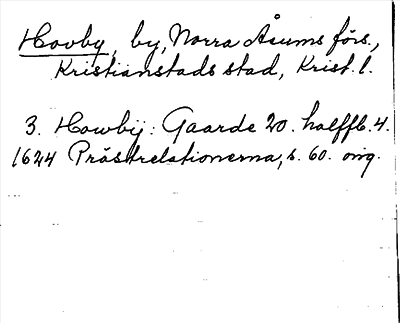 Hovby, by, Norra Åsums förs.,
Kristianstads stad, Krist. l.
3. Howbÿ: Gaarde 20. halffb. 4.
1624 Prästrelationerna, s. 60. orig.